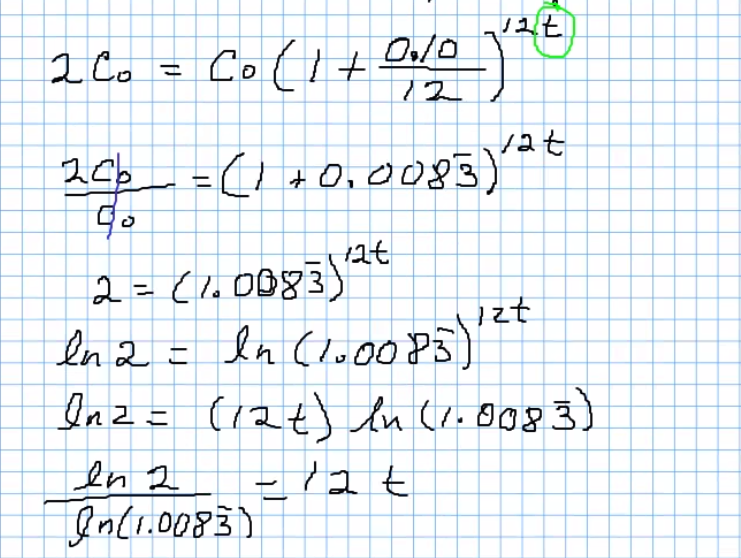 2C₀ = C₀(1 + 0.10/12)^12t
2C₀/C₀ = (1 + 0.0083̅)^12t
2 = (1.0083̅)^12t
ln 2 = ln (1.0083̅)^12t
ln 2 = (12t) ln (1.0083̅)
ln 2/ln(1.0083̅) = 12t